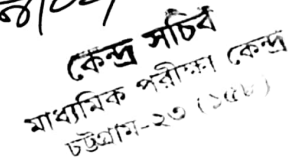 কেন্দ্র সচিব
মাধ্যমিক পরীক্ষা কেন্দ্র
চট্টগ্রাম-২৩ (১৫৮)